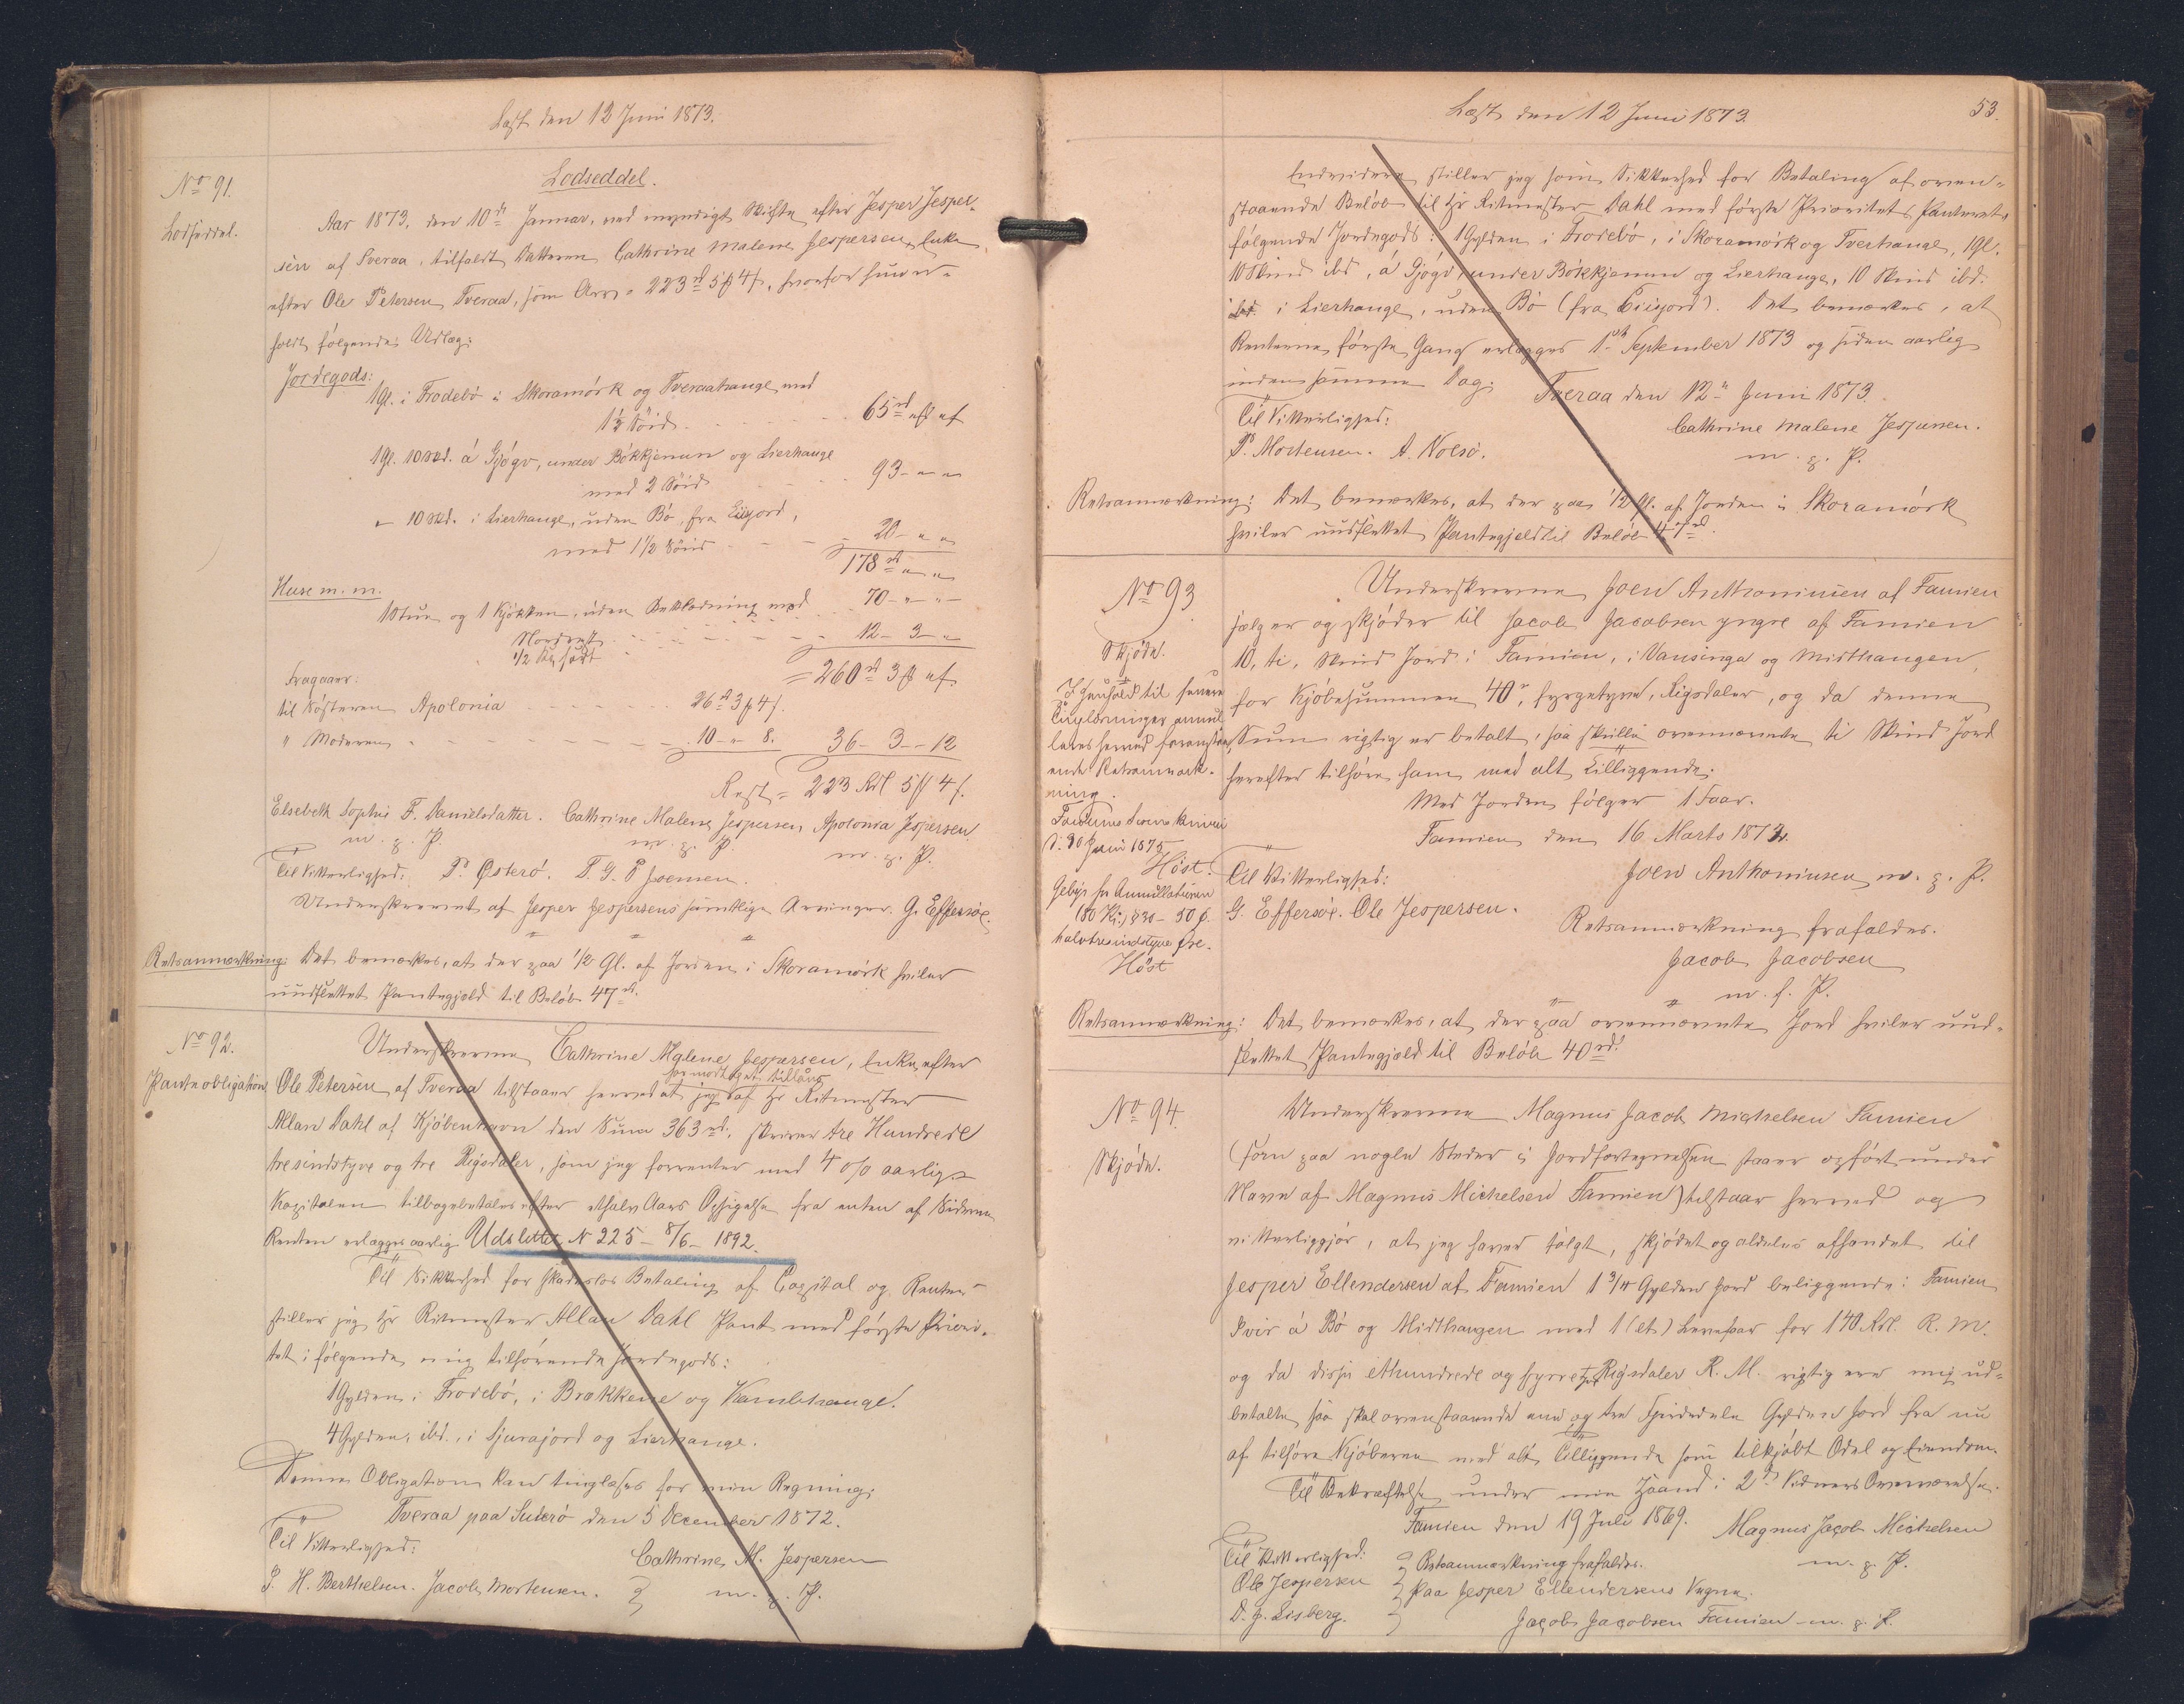 Læst den 12 Juni 1873.
No 91.
Lodseddel.
Lodseddel.
Aar 1873, den 10de Januar, ved myndigt Skifte efter Jesper Jesper-
sen af Tveraa, tilfaldt Datteren Cathrine Malene Jespersen, Enke
efter Ole Petersen Tveraa, som Arv = 223rd 5ß 4f, hvorfor hun er
holdt følgende Udlæg:
Jordegods:
1 Gl. i Frodebö i Skoramörk og Tveraahauge med
1½ Söid - - - 65rd " "
1 Gl. 10 Skd. á Gjógv, under Bökkjenun og Lierhauge
med 2 Söid - - 93 - " "
" 10 Skd. i Lierhauge, uden Bö, fra Eiisjord,
med 1½ Söid - - - 20 - " "
178rd " "
Huse m. m.
1 Stue og 1 Kjökken, uden Beklædning med - 70 - " -
- - - 12 - 3 - "
½
= 260rd 3ß "
Fragaaer:
til Söstren Apolonia - - - 26rd 3ß 4f.
" Moderen - - - 10 - " 8. 36 - 3 - 12
Rest = 223 Rdl 5ß 4f.
Elsebeth Sophie F. Danielsdatter. Cathrine Malene Jespersen Apolonia Jespersen
m. p. P. m. p. P. m. p. P.
Til Vitterlighed: P. Österö. P. G. P. Joensen.
Underskrevet af Jesper Jespersens samtlige Arvinger. G. Effersöe.
Retsanmærkning: Det bemærkes, at der paa ½ Gl. af Jorden i Skoramörk hviler
uudslettet Pantegjæld til Beløb 47rd.
No 92.
Panteobligation
Underskrevne Cathrine Malene Jespersen, Enke efter
har modtaget tillaans
Ole Petersen af Tveraa tilstaaer herved at jeg af Hr Ritmester
Allan Dahl af Kjöbenhavn den Sum 363rd, skriver tre Hundrede
tresindstyve og tre Rigsdaler, som jeg forrenter med 4 o/o aarlig.
Kapitalen tilbagebetales efter et halv Aars Opsigelse fra enten af Siderne
Renten erlægges aarlig. Udslettet N 225 - 8/6 - 1892.
Til Sikkerhed for skadeslös Betaling af Capital og Renter
stiller jeg Hr Ritmester Allan Dahl Pant med förste Priori-
tet i fölgende mig tilhörende Jordegods:
1 Gylden i Frodebö, i Brækkerne og Kambhauge.
4 Gylden, ibd., i Sjurajord og Lierhauge.
Denne Obligation kan tinglæses for min Regning.
Tveraa paa Suderö den 5 December 1872.
Til Vitterlighed:
Cathrine M. Jespersen
P. H. Berthelsen. Jacob Mortensen. m. p. P.
Læst den 12 Juni 1873.
53.
Endvidere stiller jeg som Sikkerhed for Betaling af oven-
staaende Belöb til Hr Ritmester Dahl med förste Prioritets Panteret
fölgende Jordegods: 1 Gylden i Frodebö, i Skoramörk og Tverhauge, 1 Gl.
10 Skind ibd, á Gjógv, under Bökkjenun og Lierhauge, 10 Skind ibd.
ibd. i Lierhauge, uden Bö (fra Eiisjord). Det bemærkes, at
Renterne förste Gang erlægges 1ste September 1873 og siden aarlig
inden samme Dag.
Tveraa den 12te Juni 1873.
Til Vitterlighed:
Cathrine Malene Jespersen.
P. Mortensen. A. Nolsö.
m. p. P.
Retsanmærkning: Det bemærkes, at der paa ½ Gl. af Jorden i Skoramörk
hviler uudslettet Pantegjæld til Belöb 47rd.
No 93
Skjöde.
I Henhold til senere
Tinglæsninger annul-
leres herved foranstaa-
ende Retsanmærk-
ning.
d. 30 Juni 1875
Höst.
Gebyr for Annullationen
halvtresindstyve Öre.
Höst
Underskrevne Joen Anthoniusen af Famien
sælger og skjöder til Jacob Jacobsen yngre af Famien
10, ti, Skind Jord i Famien, i Vansinga og Midthaugen,
for Kjöbesummen 40rd, fyrgetyve, Rigsdaler, og da denne
Sum rigtig er betalt, saa skulle ovennævnte ti Skind Jord
herefter tilhöre ham med alt Tilliggende.
Med Jorden fölger 1 Faar.
Famien den 16 Marts 1873.
Joen Anthoniusen m. p. P.
Til Vitterlighed:
G. Effersöe. Ole Jespersen.
Retsanmærkning frafaldes.
Jacob Jacobsen
m. p. P.
Retsanmærkning: Det bemærkes, at der paa ovennævnte Jord hviler uud-
slettet Pantegjæld til Belöb 40rd.
No 94.
Skjöde.
Underskrevne Magnus Jacob Michelsen Famien
(som paa nogle Steder i Jordfortegnelsen staaer opfört under
Navn af Magnus Michelsen Famien) tilstaar herved og
vitterliggjör, at jeg haver solgt, skjödet og aldeles afhændet til
Jesper Ellendersen af Famien 1 3/4 Gylden Jord beliggende i Famien
Ivir á Bö og Midthaugen med 1 (et) Levefaar for 140 Rdl. R. M.
og da disse ethundrede og fyrretyve Rigsdaler R. M. rigtig ere mig ud-
betalte, saa skal ovenstaaende en og tre Fjerdedele Gylden Jord fra nu
af tilhöre Kjöberen med alt Tilliggende som tilkjöbt Odel og Eiendom.
Til Bekræftelse under min Haand i 2de Vidners Overværelse.
Famien den 19 Juli 1869. Magnus Jacob Michelsen
m. p. P.
Til Vitterlighed:
Retsanmærkning frafaldes.
Ole Jespersen
Paa Jesper Ellendersens Vegne.
D. J. Lisberg.
Jacob Jacobsen Famien m. p. P.